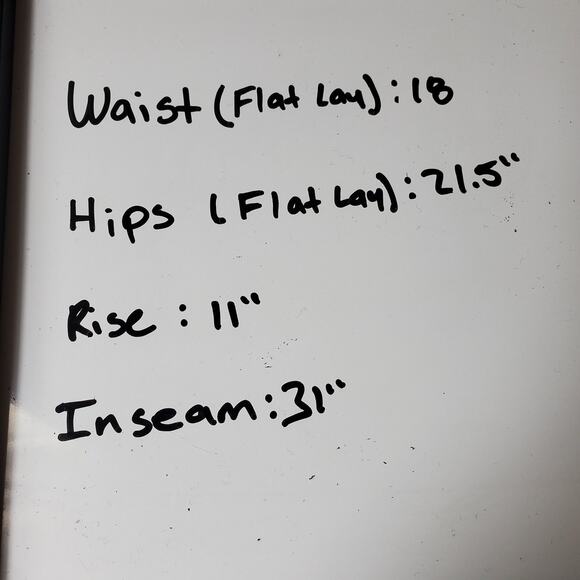 Waist (Flat Lay): 18
Hips (Flat Lay): 21.5"
Rise : 11"
Inseam: 31"